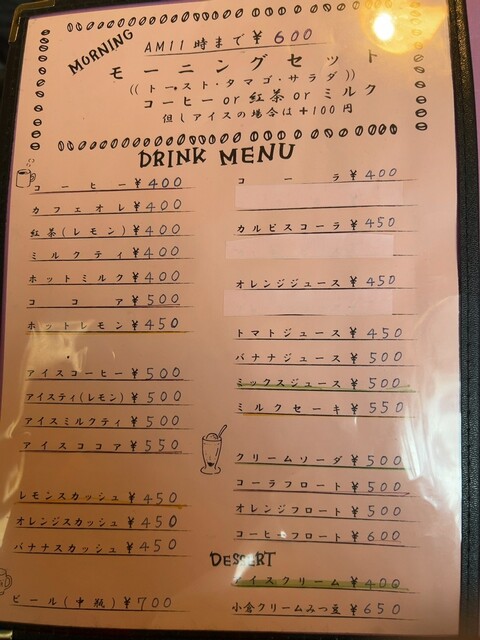 MORNING
AM11時まで¥600
モーニングセット
((トースト・タマゴ・サラダ))
コーヒーor紅茶orミルク
但しアイスの場合は+100円
DRINK MENU
コーヒー¥400
カフェオレ¥400
紅茶(レモン)¥400
ミルクティ¥400
ホットミルク¥400
ココア¥500
ホットレモン¥450
アイスコーヒー¥500
アイスティ(レモン)¥500
アイスミルクティ¥500
アイスココア¥550
レモンスカッシュ¥450
オレンジスカッシュ¥450
バナナスカッシュ¥450
ビール(中瓶)¥700
コーラ¥400
カルピスコーラ¥450
オレンジジュース¥450
トマトジュース¥450
バナナジュース¥500
ミックスジュース¥500
ミルクセーキ¥550
クリームソーダ¥500
コーラフロート¥500
オレンジフロート¥500
コーヒーフロート¥600
DESSERT
アイスクリーム¥400
小倉クリームみつ豆¥650